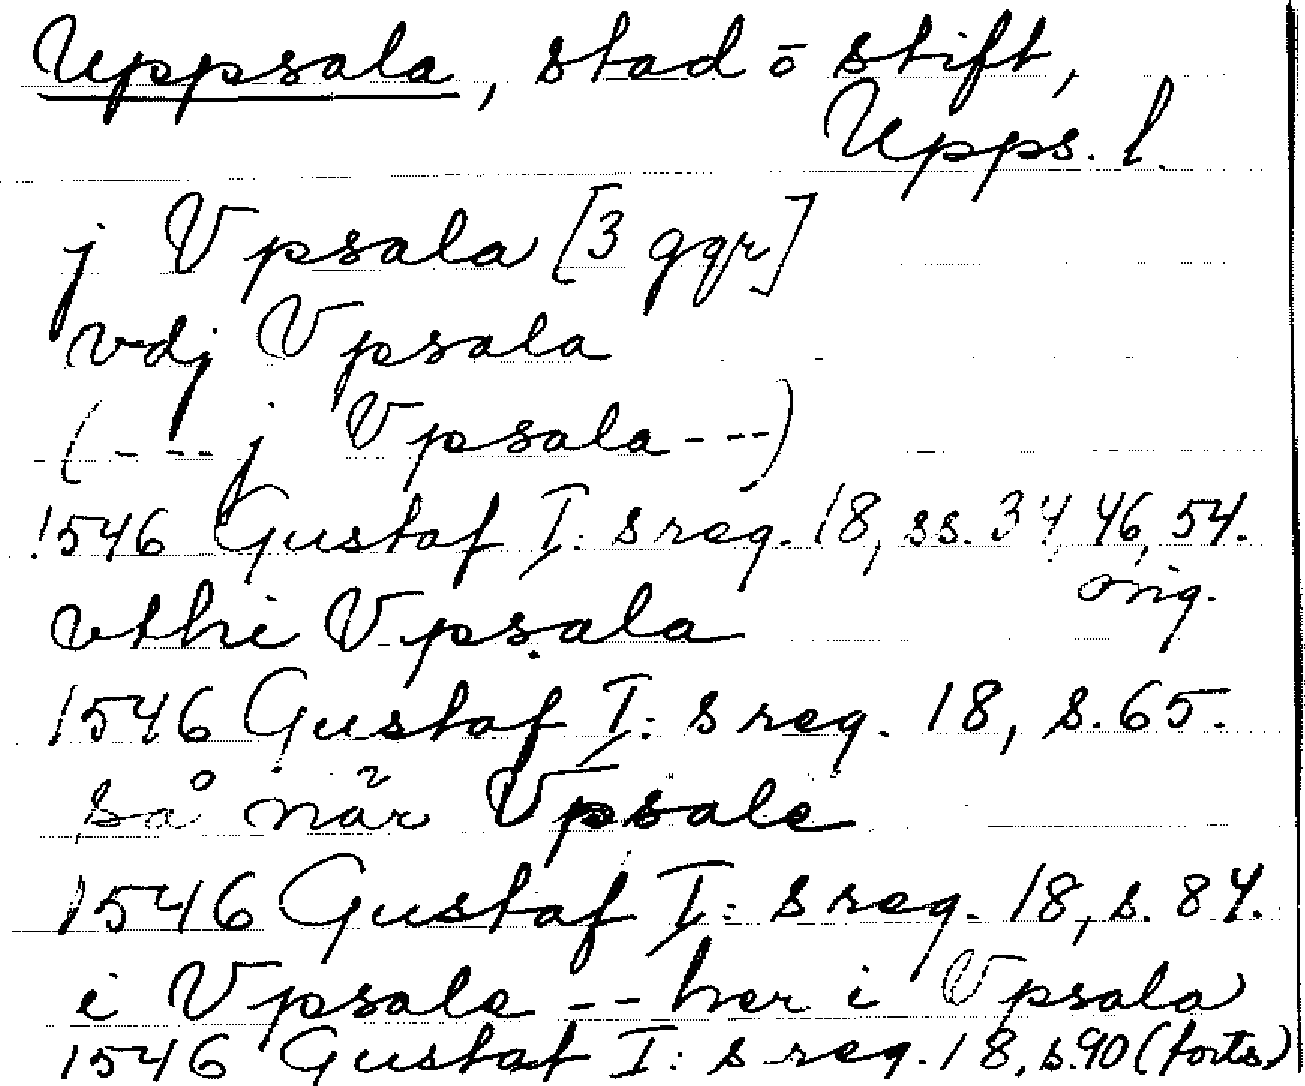 Uppsala, stad o stift,
Upps. l.
j Vpsala [3 ggr]
vdj Vpsala
(---j Vpsala---)
1546 Gustaf I:s reg. 18, ss. 34, 46, 54.
orig.
vthi Vpsala
1546 Gustaf I:s reg. 18, s. 65.
så når Vpsale
1546 Gustaf I:s reg. 18, s. 84.
i Vpsale -- her i Vpsala
1546 Gustaf I:s reg. 18, s. 90 (forts)